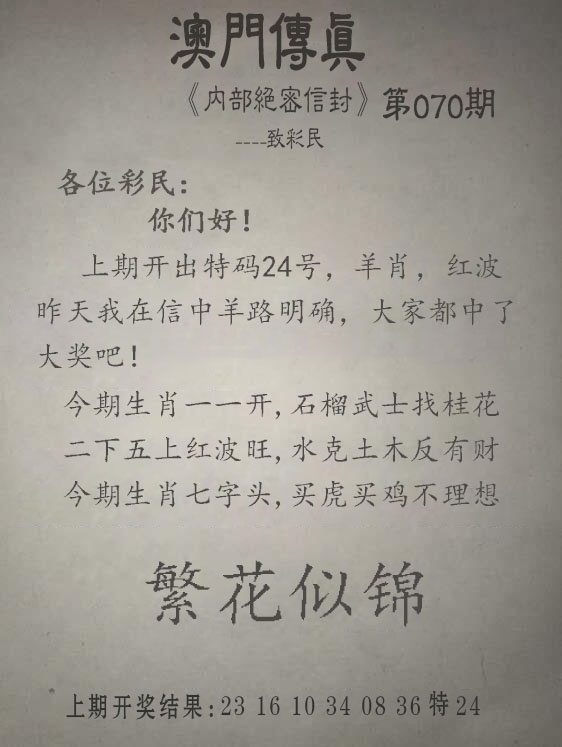 澳門傳真
《内部絕密信封》第070期
----致彩民
各位彩民：
你们好！
上期开出特码24号，羊肖，红波
昨天我在信中羊路明确，大家都中了
大奖吧！
今期生肖一一开,石榴武士找桂花
二下五上红波旺,水克土木反有财
今期生肖七字头,买虎买鸡不理想
繁花似锦
上期开奖结果:23 16 10 34 08 36 特 24